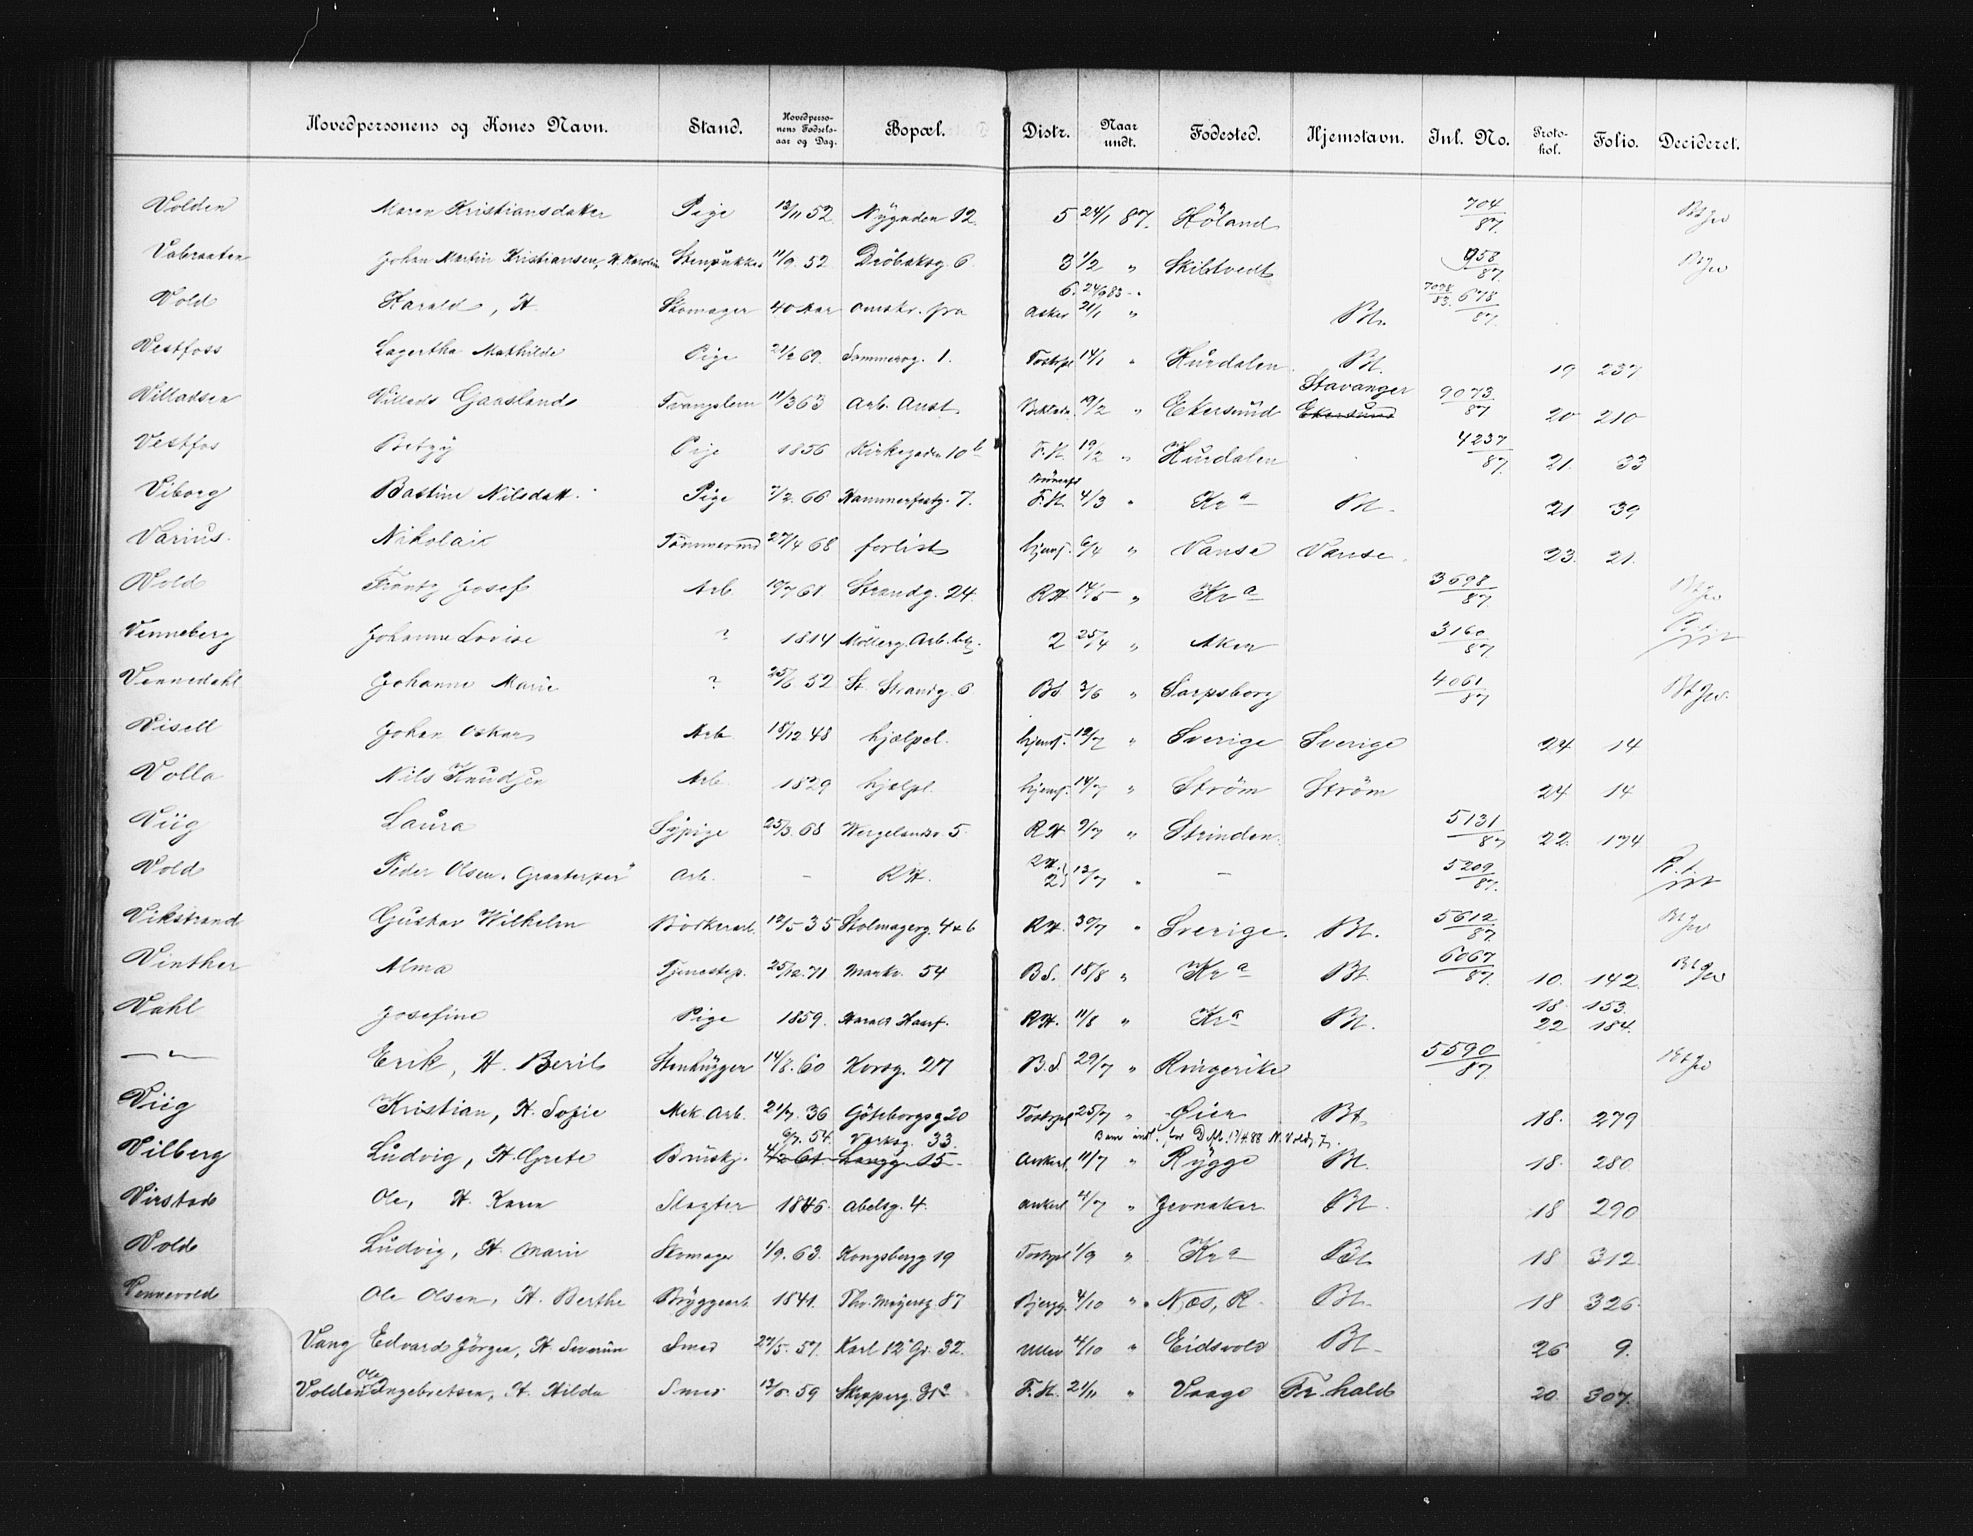 Hovedpersonens og Kones Navn. Stand. Hovedperso-nens Fødsels-aar og Dag. Bopæl. Distr. Naar undt. Fødested. Hjemstavn. Inl. No. Proto-kol. Folio. Decideret.
Volden Maren Kristiansdatter Pige 12/11 52 Nygaden 12 5 24/1 87. Höland 704/87.
Johan Martin Kristiansen, H. Karolin 11/9. 52 Dröbaksg. 6 3 1/2 " Skibtvedt 958/87.
Vold Harald, H. Skomager 40 Aar 21/1 " Bt. 678/87.
Vestfoss Lagertha Mathilde Pige 21/2 69. Sommerog. 1. 14/1 " Hurdalen Bt. 19 237
Villadsen Villads Gaasland Tvangslem 11/3 63 Arb. Anst. 19/2 " Ekersund Stavanger Ekersund 9073/87 20 210
Vestfos Betzy Pige 1856 Kirkegaden 10 b F.H. 19/2 " Hurdalen 4237/87. 21. 33
Viborg Bastine Nilsdatt. Pige 7/2. 66 Hammerfestg. 7. F.H. 4/3 " Kra Bt. 21 39
Varius. Nikolai Tömmermd 27/4 68 forlist hjemf. 6/4 " Vanse Vanse. 23. 21.
Vold Frantz Josef Arb 19/7 61 Strandg. 24. RH. 14/5 " Kra 3698/87.
Venneberg Johanne Lovise ? 1814 Möllerg. Arb. 2 25/4 " Aker 3160/87.
Vennedahl Johanne Marie ? 25/6. 52 St. Strandg. 6 BS 3/6 " Sarpsborg 4061/87
Visell Johan Oskar Arb 18/12 48 hjælpel. hjemf. 12/7 " Sverige Sverige 24 14
Volla Nils Knudsen Arb. 1829 hjælpl. hjemf. 14/7 " Ström Ström 24 14
Viig Laura Sypige 25/3. 68 Wergelandsv 5. RH 9/7 " Strinden. 5131/87 22. 174
Vold Peder Olsen Arb. - RH. 2 13/7 " - 5209/87.
Vikstrand Gustav Wilhelm Bödkerarb. 12/5 35 Stolmagerg. 4 & 6 RH. 30/7 " Sverige. Bt. 5612/87.
Vinther Alma Tjenestep. 25/12. 71 Markv. 54 B.S. 18/8 " Kra Bt 6067/87. 10. 142
Vahl Josefine Pige 1859. RH. 11/8 " Kra Bt. 18. 153.
22 184.
— " — Erik, H. Beril Stenhugger 14/8. 60 Korsg. 27 B.S. 29/7 " Ringerike 5590/87.
Viig Kristian, H. Sofie Mek Arb. 21/7. 36 Göteborgsg 20 25/7 " Öier Bt. 18. 279
Vilberg Ludvig, H. Grete Bruskj. 6/7. 54. Verksg. 33. Ankerl 11/7 " Rygge Bt. 18. 280
Virstad Ole, H. Karen Slagter 1846. Abelsg. 4. Ankerl 4/7 " Jevnaker Bt. 18 290
Vold Ludvig, H. Marie Skomager 1/9. 63. Kongsbergg 19 1/9 " Kra Bt 18 312.
Vennevold Ole Olsen, H. Berthe Bryggearb. 1841. Thv. Meyersg 87 4/10 " Næs, R. Bt. 18 326.
Vang Edvard Jörgen, H. Severine Smed 27/5. 57. Karl 12' Gd. 32. Ullev 4/10 " Eidsvold Bt. 26 9.
Volden Ole Ingebretsen, H. Hilda Smed 12/5. 59 Skipperg. 31a F.H. 21/11 " Vaage Fr. hald 20. 307.